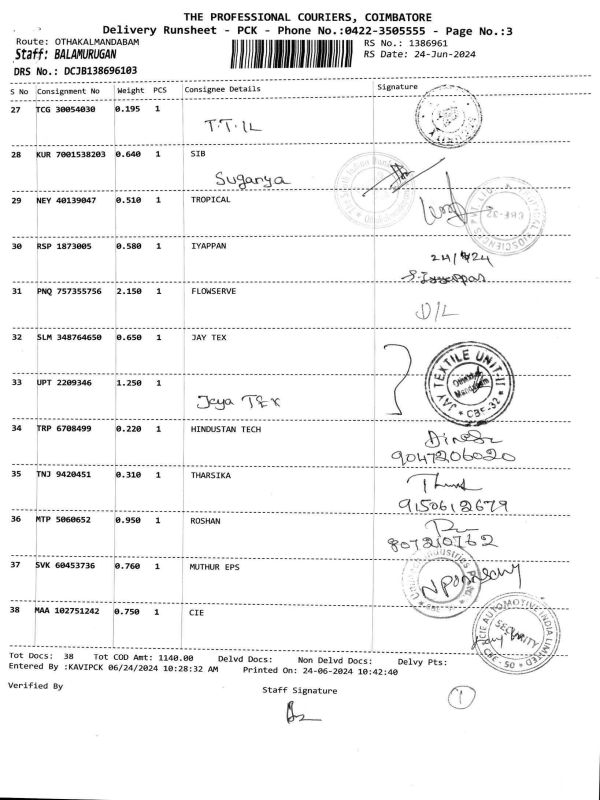 THE PROFESSIONAL COURIERS, COIMBATORE
Delivery Runsheet - PCK - Phone No.:0422-3505555 - Page No.:3
Route: OTHAKALMANDABAM RS No.: 1386961
Staff: BALAMURUGAN RS Date: 24-Jun-2024
DRS No.: DCJB138696103
S No Consignment No Weight PCS Consignee Details Signature
27 TCG 30054030 0.195 1
T.T.IL
28 KUR 7001538203 0.640 1 SIB
Suganya
29 NEY 40139047 0.510 1 TROPICAL
CBE-32
30 RSP 1873005 0.580 1 IYAPPAN
S.Iyyappan
31 PNQ 757355756 2.150 1 FLOWSERVE
D/L
32 SLM 348764650 0.650 1 JAY TEX
JAY TEXTILE UNIT-II
* CBE-32 *
33 UPT 2209346 1.250 1
Jaya TEX
34 TRP 6708499 0.220 1 HINDUSTAN TECH
Dinesh
9047206020
35 TNJ 9420451 0.310 1 THARSIKA
9150612679
36 MTP 5060652 0.950 1 ROSHAN
807210762
37 SVK 60453736 0.760 1 MUTHUR EPS
38 MAA 102751242 0.750 1 CIE
CIE AUTOMOTIVE INDIA LIMITED
SECURITY
CBE-50
Tot Docs: 38 Tot COD Amt: 1140.00 Delvd Docs: Non Delvd Docs: Delvy Pts:
Entered By :KAVIPCK 06/24/2024 10:28:32 AM Printed On: 24-06-2024 10:42:40
Verified By Staff Signature
1